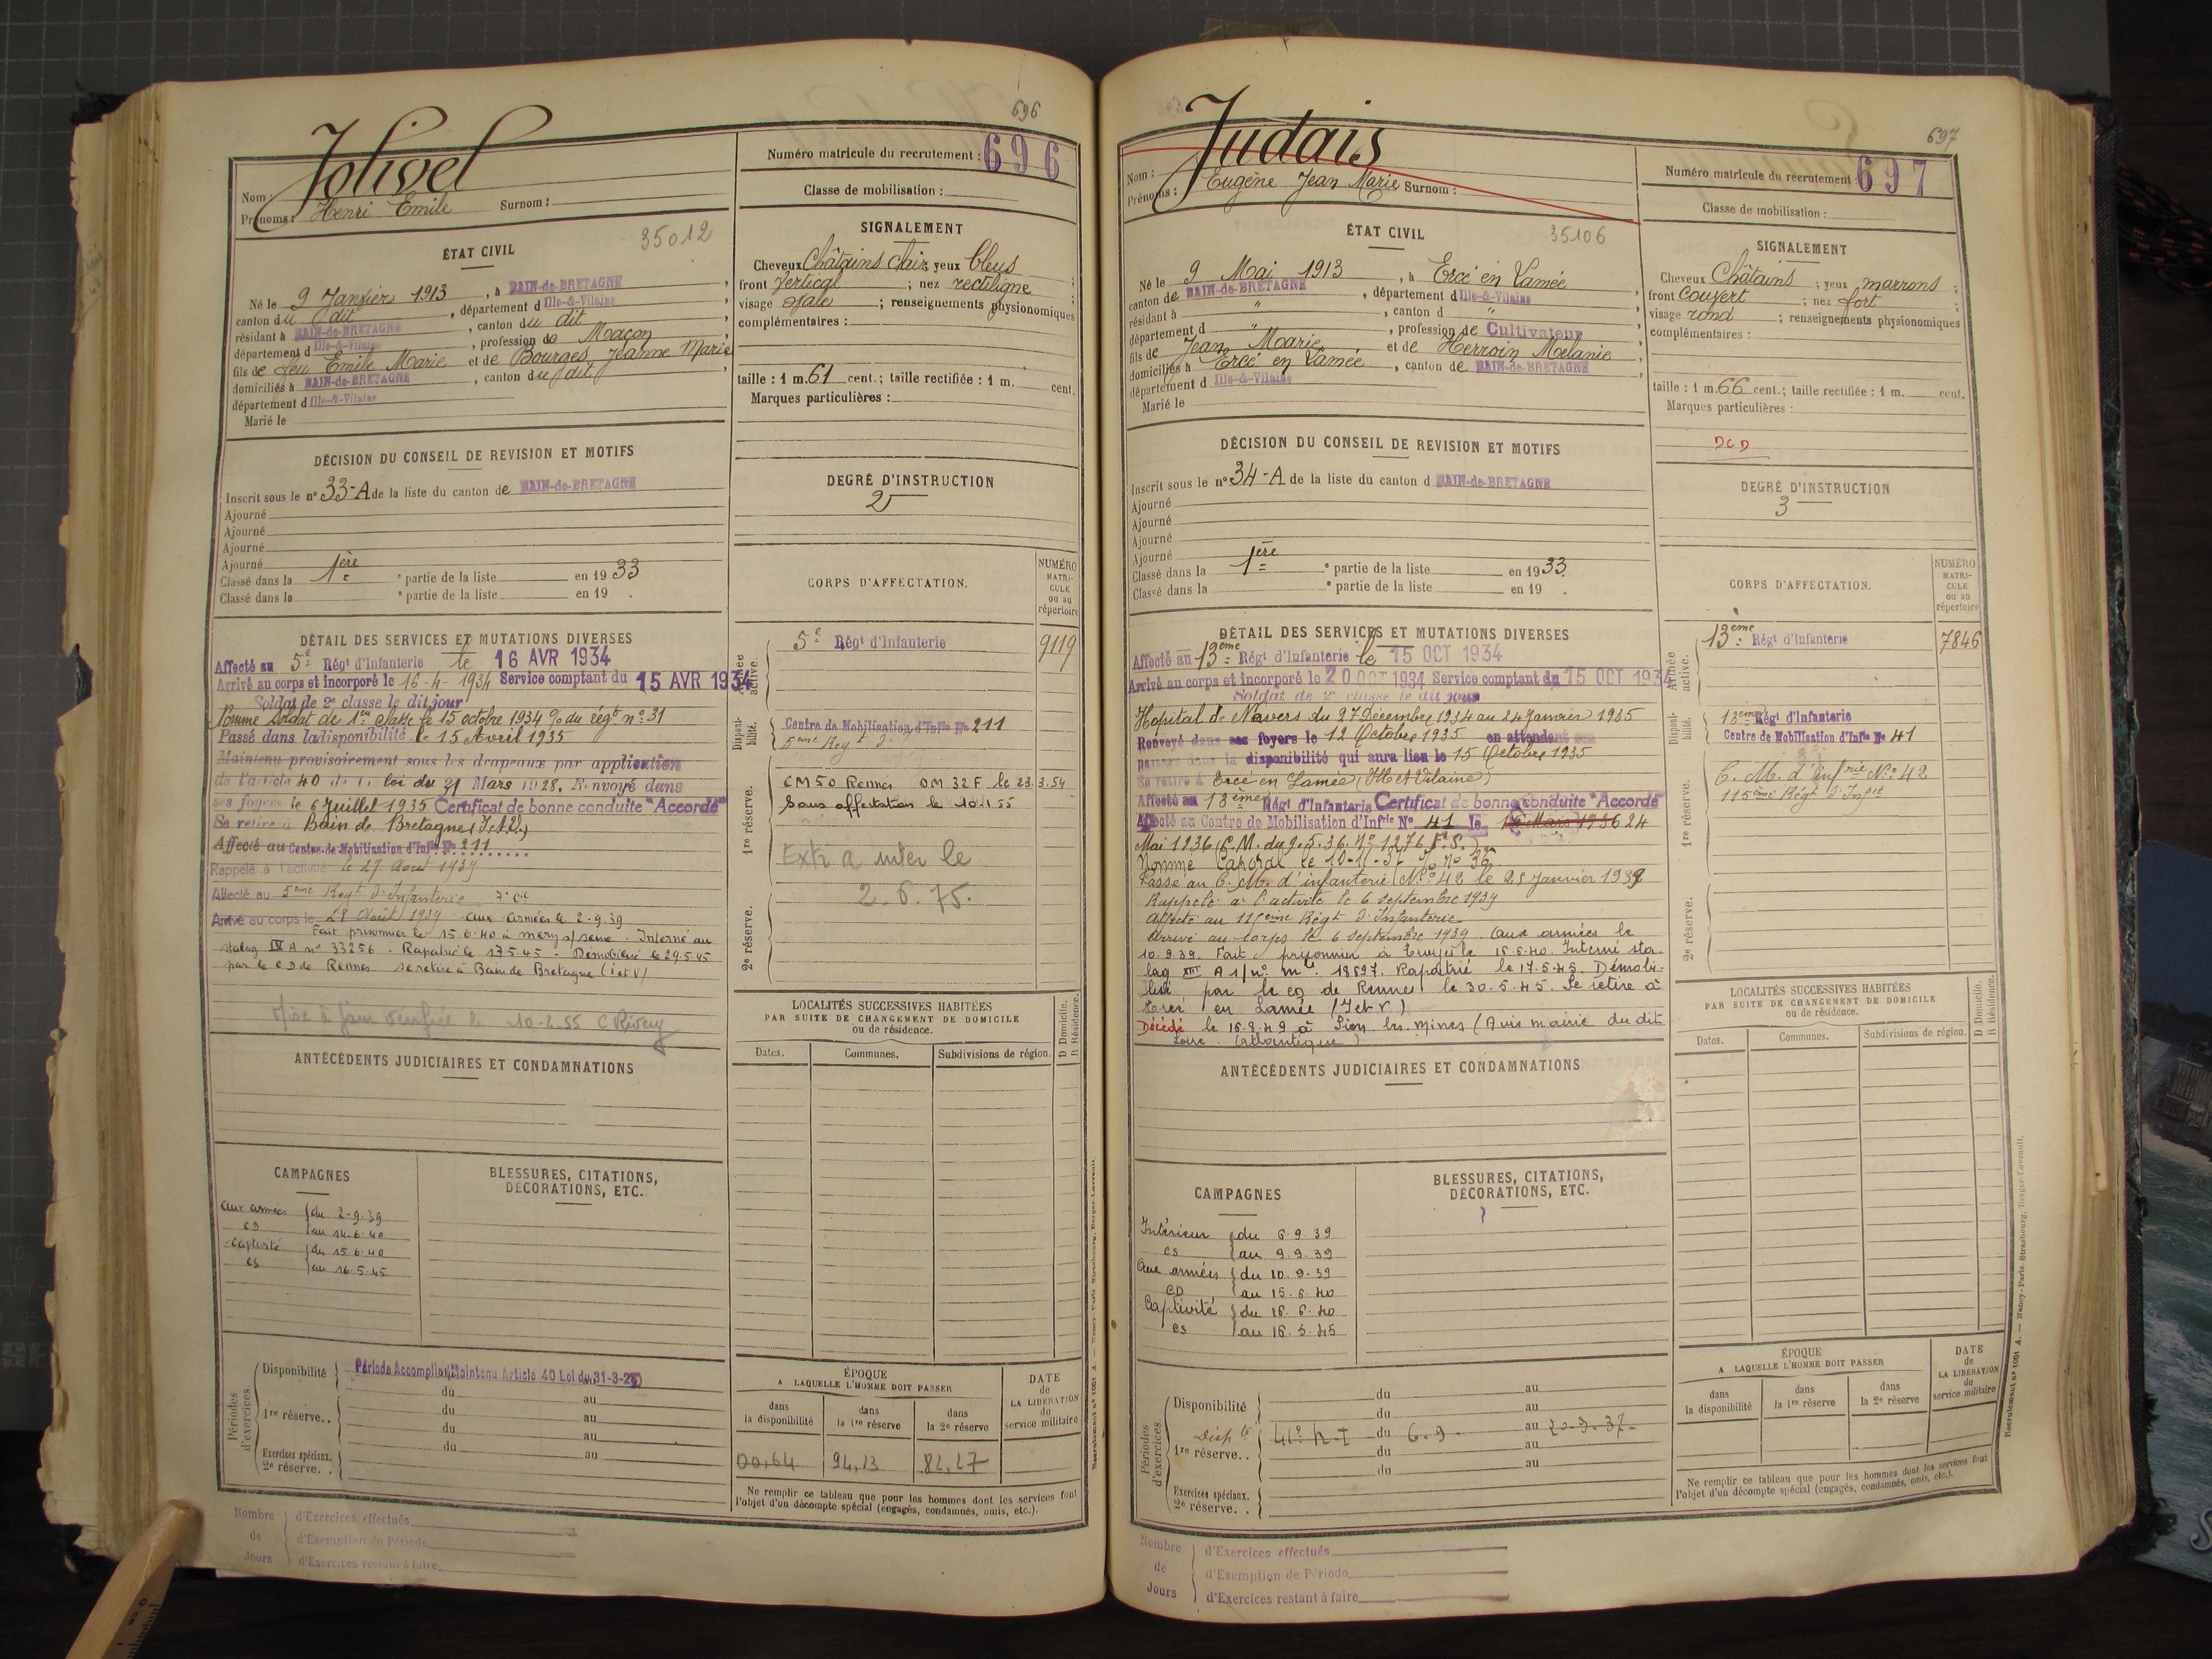 696
Jolivel
Nom :
Prénoms : Henri Emile Surnom :
Numéro matricule du recrutement : 696
Classe de mobilisation :
ÉTAT CIVIL
35012
Né le 9 Janvier 1913, à BAIN-de-BRETAGNE,
canton du dit, département d Ille-&-Vilaine,
résidant à BAIN-de-BRETAGNE, canton du dit,
département d Ille-&-Vilaine, profession de Maçon
fils de feu Emile Marie et de Bourges Jeanne Marie
domiciliés à BAIN-de-BRETAGNE, canton du dit,
département d Ille-&-Vilaine
Marié le
SIGNALEMENT
Cheveux Châtains clair; yeux bleus;
front Vertical; nez rectiligne;
visage ovale; renseignements physionomiques
complémentaires :
taille : 1 m. 61 cent.; taille rectifiée : 1 m. cent.
Marques particulières :
DÉCISION DU CONSEIL DE REVISION ET MOTIFS
Inscrit sous le n° 33-A de la liste du canton de BAIN-de-BRETAGNE
Ajourné
Ajourné
Ajourné
Ajourné
Classé dans la 1ère partie de la liste en 1933
Classé dans la partie de la liste en 19 .
DEGRÉ D'INSTRUCTION
2
DÉTAIL DES SERVICES ET MUTATIONS DIVERSES
Affecté au 5e Régt d'Infanterie le 16 AVR 1934
Arrivé au corps et incorporé le 16-4-1934 Service comptant du 15 AVR 1934
Soldat de 2e classe le dit jour
Nommé Soldat de 1ère classe le 15 octobre 1934 % du régt n° 31
Passé dans la disponibilité le 15 Avril 1935
Maintenu provisoirement sous les drapeaux par application
de l'article 40 de la loi du 31 Mars 1928. Renvoyé dans
ses foyers le 6 Juillet 1935 Certificat de bonne conduite "Accordé"
Se retire à Bain de Bretagne (I.et V.)
Affecté au Centre de Mobilisation d'Infie N° 211
Rappelé à l'activité le 27 Août 1939
Affecté au 5ème Regt d'Infanterie 7e Cie
Arrivé au corps le 28 Août 1939 - aux armées le 2-9-39
Fait prisonnier le 15-6-40 à mery s/seine. Interné au
stalag IV A n° 33256. Rapatrié le 17.5.45 - Démobilisé le 29.5.45
par le CD de Rennes. se retire à Bain de Bretagne (I et V)
Mise à jour vérifiée le 10-2-55
CORPS D'AFFECTATION.
NUMÉRO MATRICULE ou au répertoire
Armée active.
5e Régt d'Infanterie 9119
Disponibilité.
Centre de Mobilisation d'Infie N° 211
5ème Regt d'I
1re réserve.
CM 50 Rennes OM 32 F le 23.3.54
Sans affectation le 10-1-55
2e réserve.
2.6.75.
LOCALITÉS SUCCESSIVES HABITÉES
PAR SUITE DE CHANGEMENT DE DOMICILE
ou de résidence.
D Domicile.
R Résidence.
Dates. Communes. Subdivisions de région.
ANTÉCÉDENTS JUDICIAIRES ET CONDAMNATIONS
CAMPAGNES
Aux armées du 2-9-39
CD au 14-6-40
captivité du 15-6-40
CS au 16-5-45
BLESSURES, CITATIONS,
DÉCORATIONS, ETC.
Périodes d'exercices.
Disponibilité Période Accomplie, Maintenu Article 40 Loi du 31-3-28
du au
1re réserve.. du au
du au
du au
Exercices spéciaux.
2e réserve. .
ÉPOQUE
A LAQUELLE L'HOMME DOIT PASSER
dans la disponibilité
dans la 1re réserve
dans la 2e réserve
DATE de LA LIBÉRATION du service militaire
00,64 94,13 82,27
Ne remplir ce tableau que pour les hommes dont les services font
l'objet d'un décompte spécial (engagés, condamnés, omis, etc.).
Nombre de Jours
d'Exercices effectués
d'Exemption de Période
d'Exercices restant à faire
697
Judais
Nom :
Prénoms : Eugène Jean Marie Surnom :
Numéro matricule du recrutement : 697
Classe de mobilisation :
ÉTAT CIVIL
35106
Né le 9 Mai 1913, à Ercé en Lamée
canton de BAIN-de-BRETAGNE, département d Ille-&-Vilaine,
résidant à ", canton d ",
département d ", profession de Cultivateur
fils de Jean Marie et de Herroin Mélanie
domiciliés à Ercé en Lamée, canton de BAIN-de-BRETAGNE,
département d Ille-&-Vilaine
Marié le
SIGNALEMENT
Cheveux Châtains; yeux marrons;
front couvert; nez fort;
visage rond; renseignements physionomiques
complémentaires :
taille : 1 m. 66 cent.; taille rectifiée : 1 m. cent.
Marques particulières :
DCD
DÉCISION DU CONSEIL DE REVISION ET MOTIFS
Inscrit sous le n° 34-A de la liste du canton d BAIN-de-BRETAGNE
Ajourné
Ajourné
Ajourné
Ajourné
Classé dans la 1ère partie de la liste en 1933.
Classé dans la partie de la liste en 19 .
DEGRÉ D'INSTRUCTION
3
DÉTAIL DES SERVICES ET MUTATIONS DIVERSES
Affecté au 13ème Régt d'Infanterie le 15 OCT 1934
Arrivé au corps et incorporé le 20 OCT 1934 Service comptant du 15 OCT 1934
Soldat de 2e classe le dit jour
Hopital de Nevers du 27 Décembre 1934 au 24 Janvier 1935
Renvoyé dans ses foyers le 12 Octobre 1935 en attendant son
passage dans la disponibilité qui aura lieu le 15 Octobre 1935
Se retire à Ercé en Lamée (Ill et Vilaine)
Affecté au 13ème Régt d'Infanterie Certificat de bonne conduite "Accordé"
Affecté au Centre de Mobilisation d'Infrie N° 41 le 24
Mai 1936 (C.M. du 9.5.36. N° 1276 F.S.)
Passé au C. M. d'infanterie N° 42 le 25 Janvier 1939
Rappelé à l'activité le 6 septembre 1939
Affecté au 115ème Régt d'Infanterie
Arrivé au corps le 6 septembre 1939. Aux armées le
10.9.39. Fait prisonnier à Troyes le 16-6-40. Interné sta-
lag XIII A 1/n° mle 18697. Rapatrié le 17.5.45. Démobi-
lisé par le CD de Rennes le 30.5.45. Se retire à
Ercé en Lamée (I et V)
Décédé le 16-8-49 à Sion les Mines (Avis mairie du dit
Loire Atlantique)
CORPS D'AFFECTATION.
NUMÉRO MATRICULE ou au répertoire
Armée active.
13ème Régt d'Infanterie 7846
Disponibilité.
13ème Régt d'Infanterie
Centre de Mobilisation d'Infie N° 41
1re réserve.
C. M. d'Infrie N° 42
115ème Régt d'Infie
2e réserve.
LOCALITÉS SUCCESSIVES HABITÉES
PAR SUITE DE CHANGEMENT DE DOMICILE
ou de résidence.
D Domicile.
R Résidence.
Dates. Communes. Subdivisions de région.
ANTÉCÉDENTS JUDICIAIRES ET CONDAMNATIONS
CAMPAGNES
Intérieur du 6.9.39
CS au 9.9.39
Aux armées du 10.9.39
CD au 15.6.40
Captivité du 16.6.40
CS au 16.5.45
BLESSURES, CITATIONS,
DÉCORATIONS, ETC.
Périodes d'exercices.
Disponibilité du au
du au
Disp té 41e R-I du 6-9- au 20-9-37-
1re réserve.. du au
du au
Exercices spéciaux.
2e réserve. .
ÉPOQUE
A LAQUELLE L'HOMME DOIT PASSER
dans la disponibilité
dans la 1re réserve
dans la 2e réserve
DATE de LA LIBÉRATION du service militaire
Ne remplir ce tableau que pour les hommes dont les services font
l'objet d'un décompte spécial (engagés, condamnés, omis, etc.).
Recrutement n° 1051 A. — Nancy-Paris-Strasbourg, Berger-Levrault.
Nombre de Jours
d'Exercices effectués
d'Exemption de Période
d'Exercices restant à faire